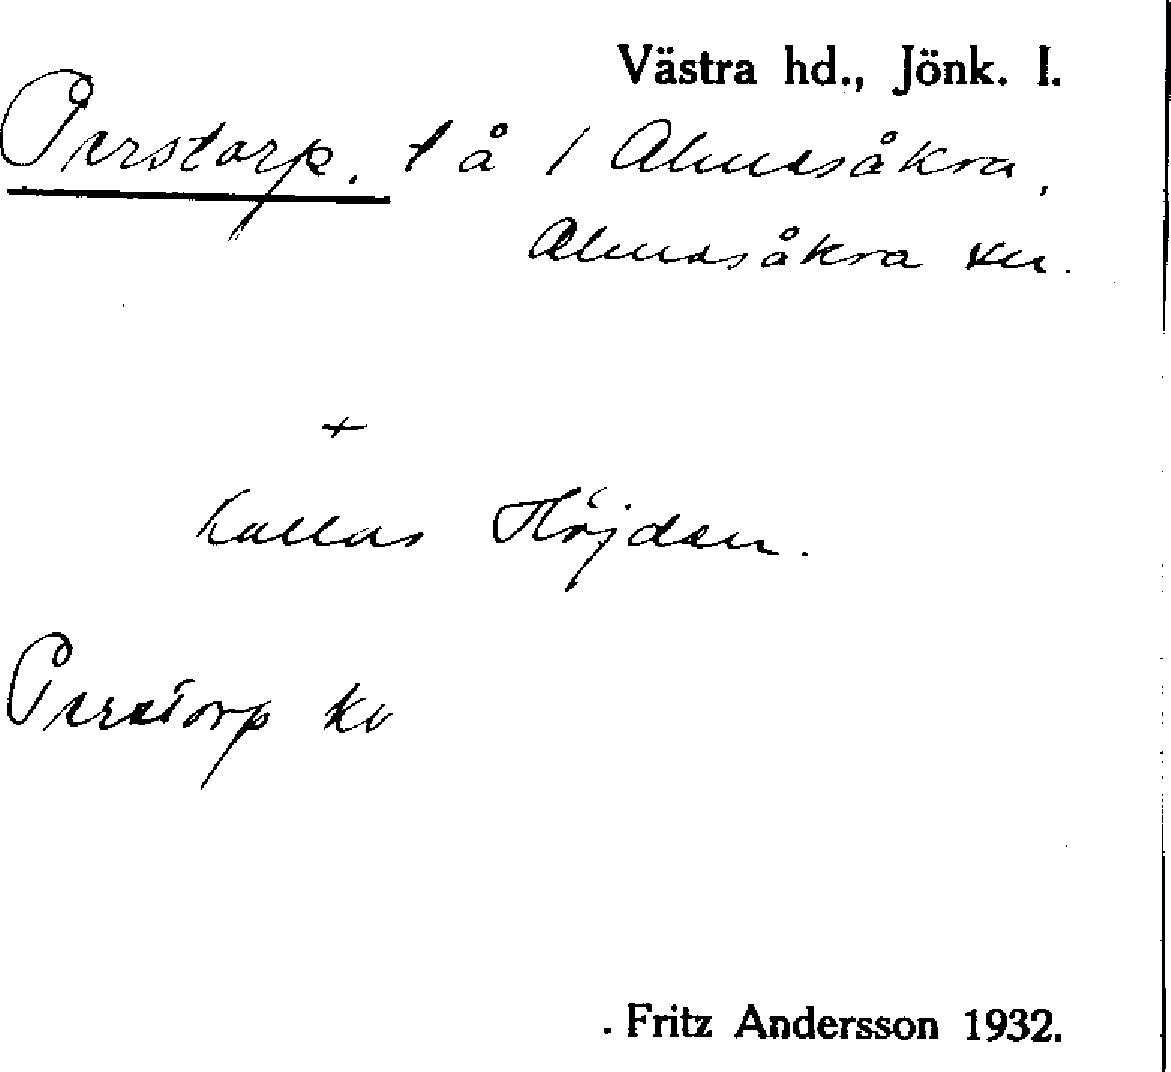 Västra hd., Jönk. l.
Perstorp. t å 1 Almesåkra,
Almesåkra sn.
+
kallas Höjden.
Perstorp kv
. Fritz Andersson 1932.